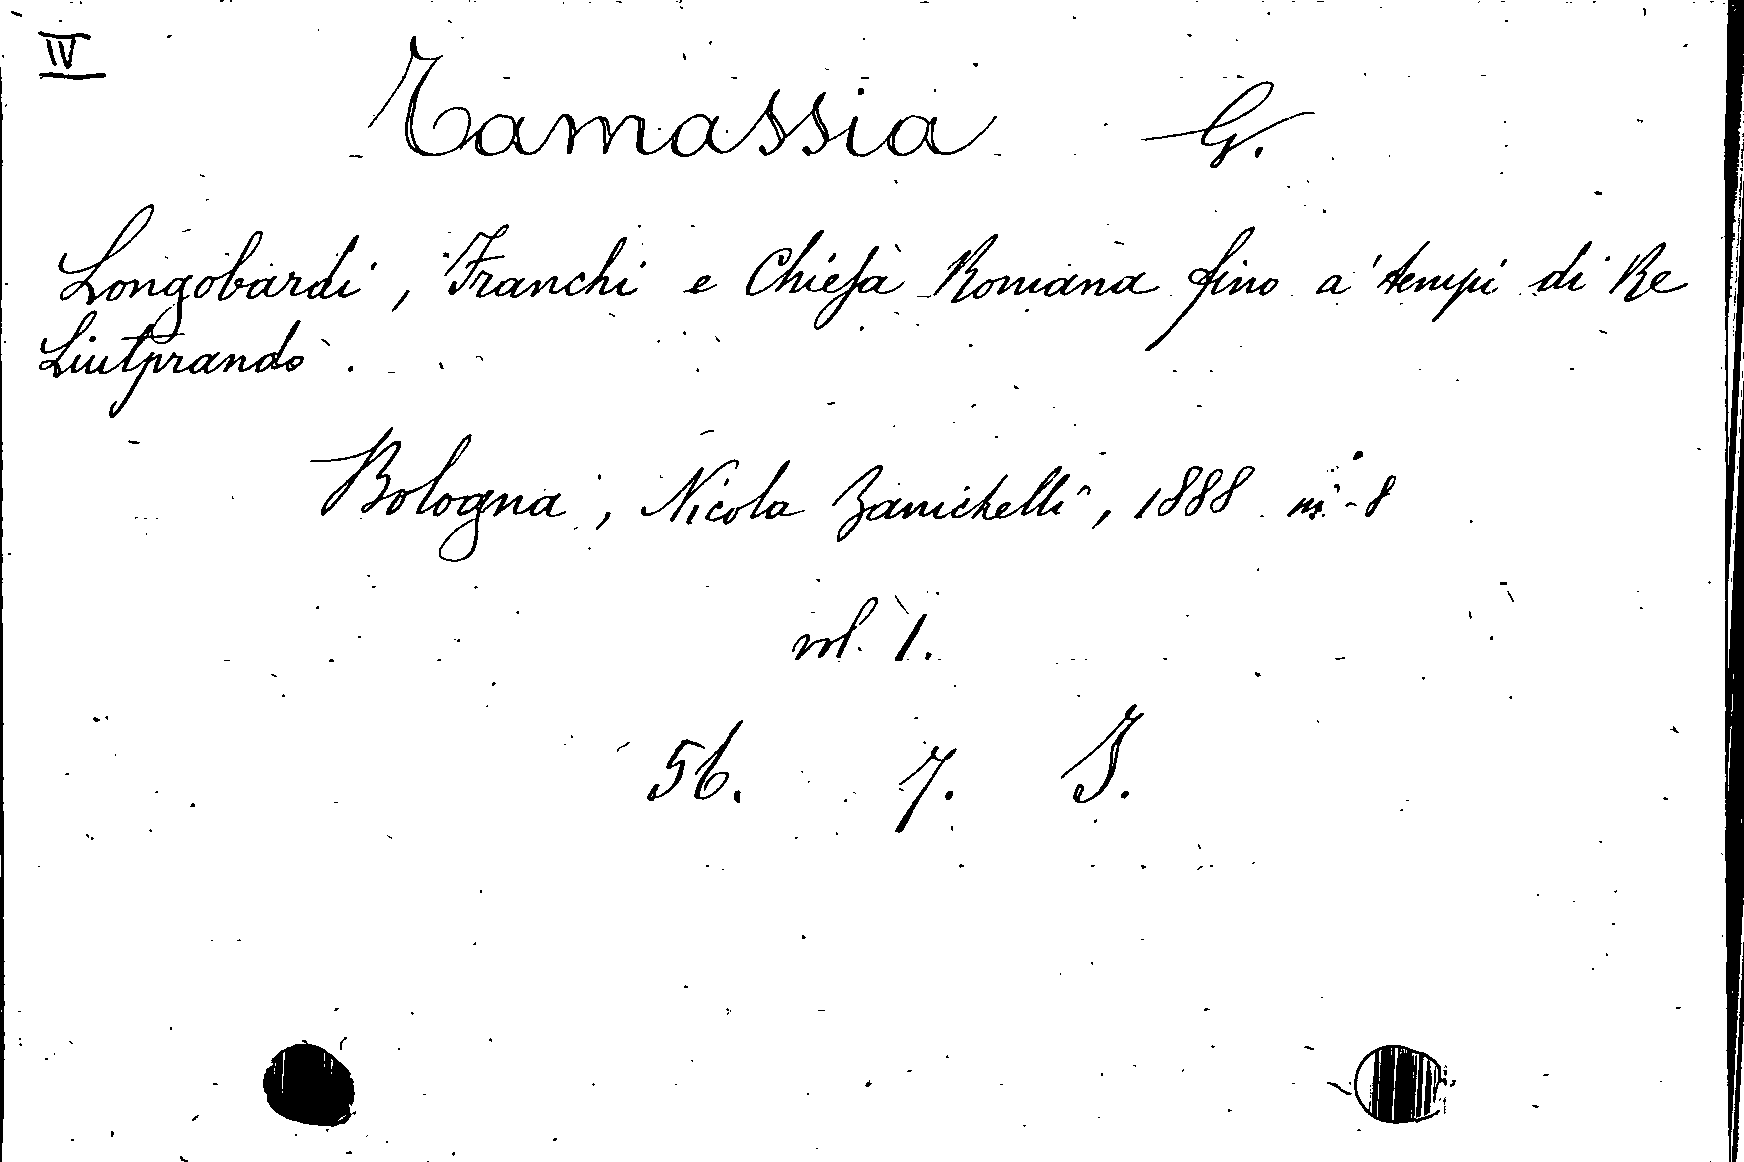 IV
Tamassia G.
Longobardi, Franchi e Chiesa Romana fino a' tempi di Re
Liutprando.
Bologna, Nicola Zanichelli, 1888 in-8°
vol. 1.
56. 7. I.